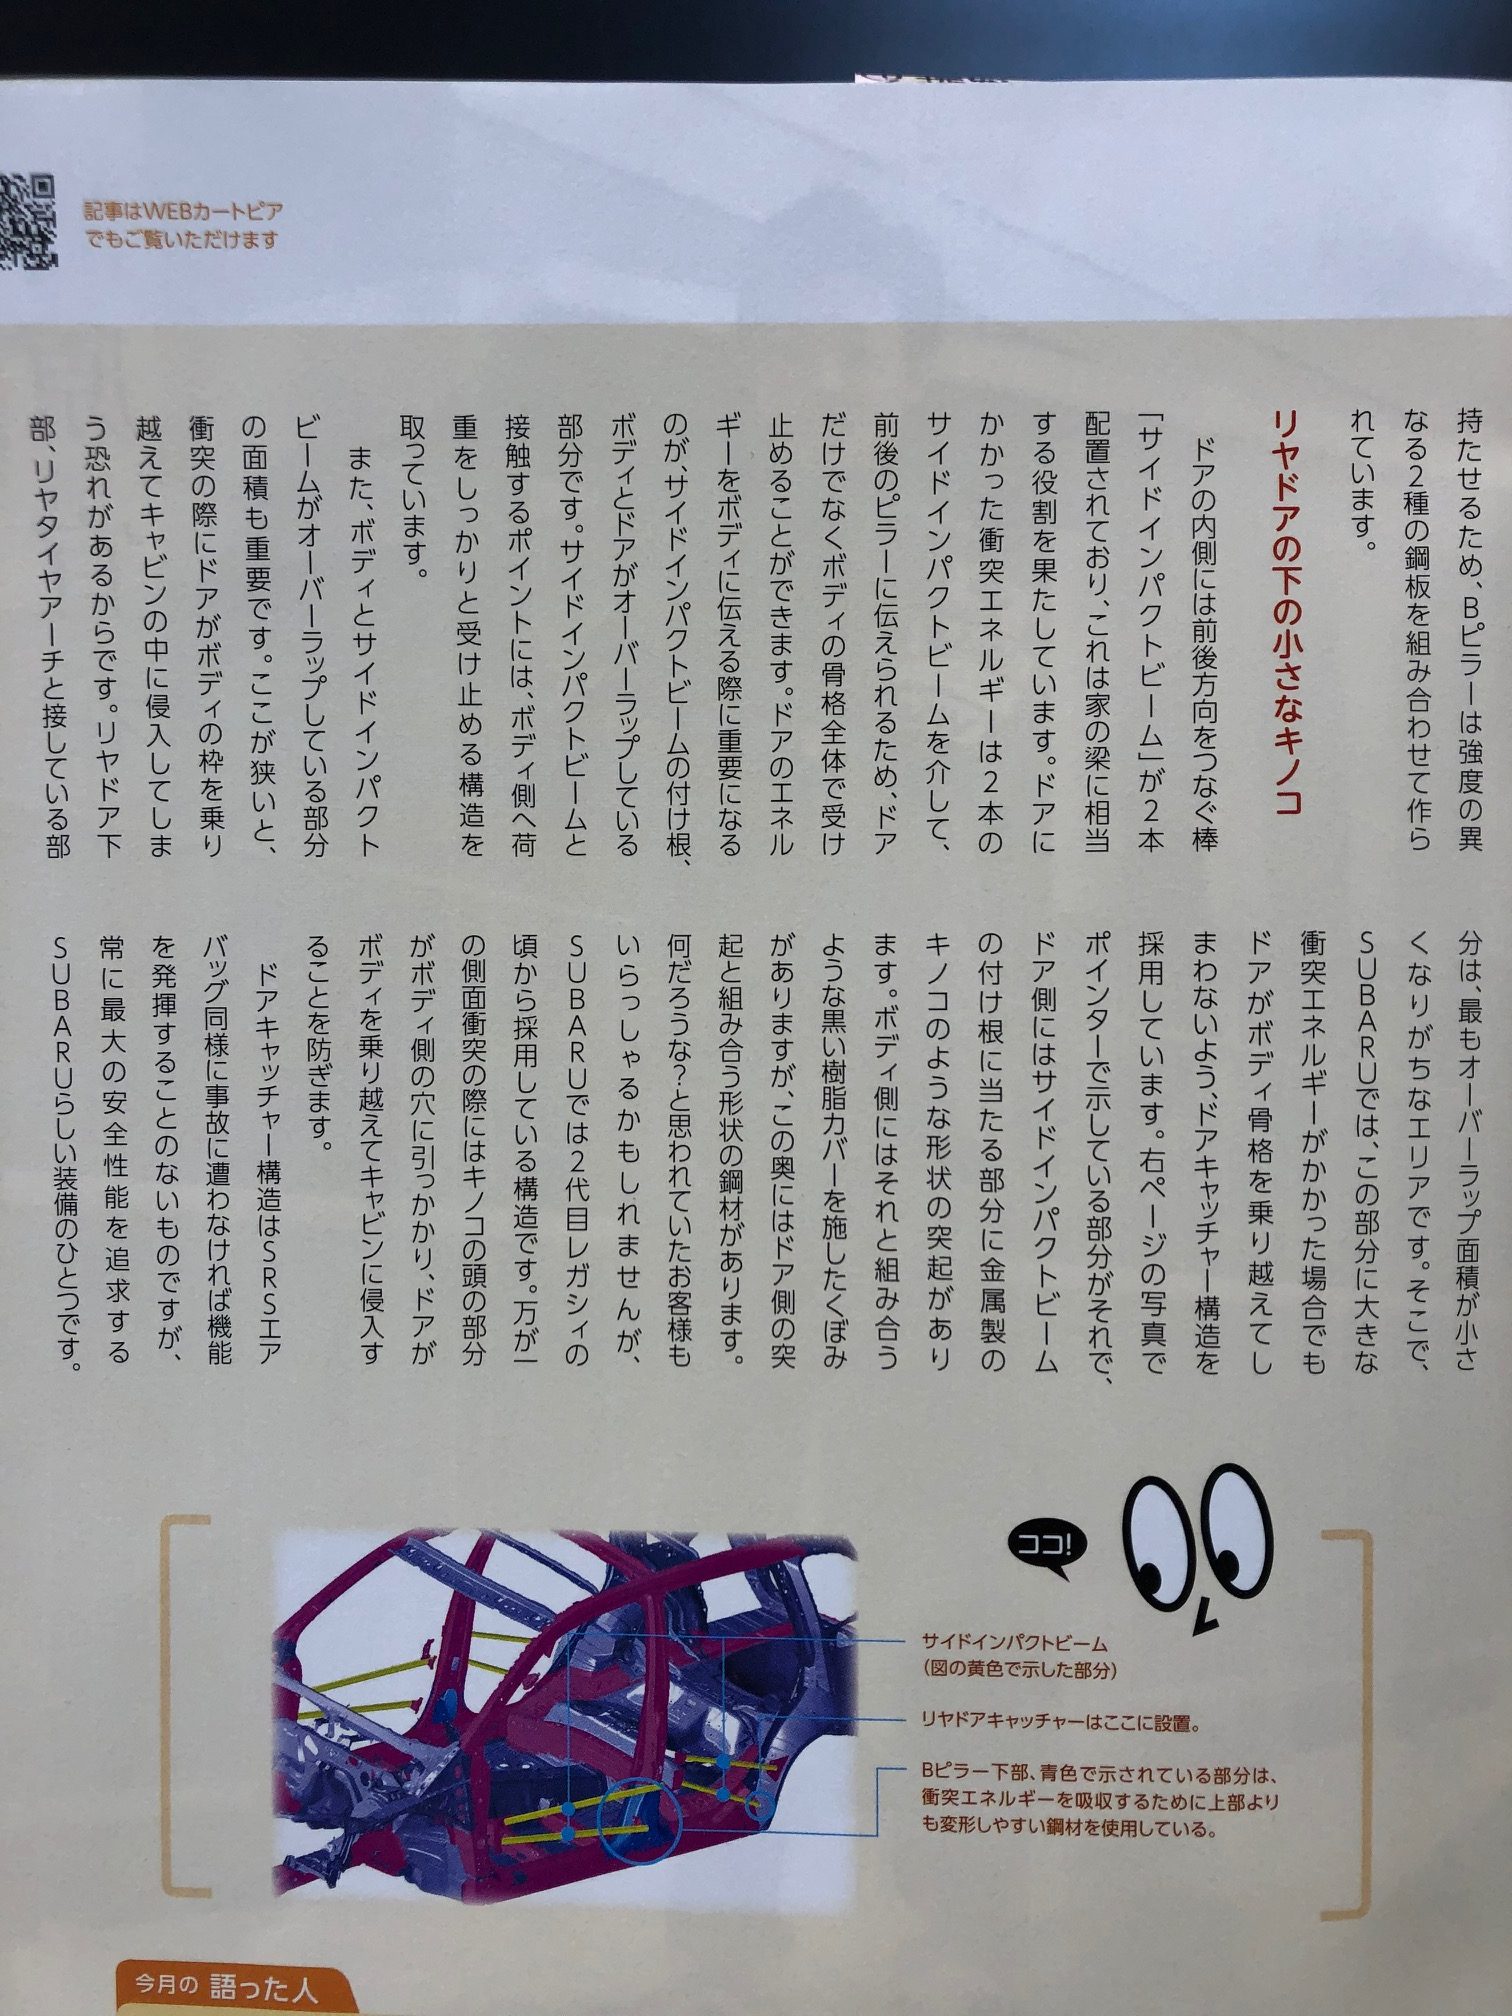 記事はWEBカートピア
でもご覧いただけます
持たせるため、Bピラーは強度の異
なる2種の鋼板を組み合わせて作ら
れています。
リヤドアの下の小さなキノコ
ドアの内側には前後方向をつなぐ棒
「サイドインパクトビーム」が2本
配置されており、これは家の梁に相当
する役割を果たしています。ドアに
かかった衝突エネルギーは2本の
サイドインパクトビームを介して、
前後のピラーに伝えられるため、ドア
だけでなくボディの骨格全体で受け
止めることができます。ドアのエネル
ギーをボディに伝える際に重要になる
のが、サイドインパクトビームの付け根、
ボディとドアがオーバーラップしている
部分です。サイドインパクトビームと
接触するポイントには、ボディ側へ荷
重をしっかりと受け止める構造を
取っています。
また、ボディとサイドインパクト
ビームがオーバーラップしている部分
の面積も重要です。ここが狭いと、
衝突の際にドアがボディの枠を乗り
越えてキャビンの中に侵入してしま
う恐れがあるからです。リヤドア下
部、リヤタイヤアーチと接している部
分は、最もオーバーラップ面積が小さ
くなりがちなエリアです。そこで、
SUBARUでは、この部分に大きな
衝突エネルギーがかかった場合でも
ドアがボディ骨格を乗り越えてし
まわないよう、ドアキャッチャー構造を
採用しています。右ページの写真で
ポインターで示している部分がそれで、
ドア側にはサイドインパクトビーム
の付け根に当たる部分に金属製の
キノコのような形状の突起があり
ます。ボディ側にはそれと組み合う
ような黒い樹脂カバーを施したくぼみ
がありますが、この奥にはドア側の突
起と組み合う形状の鋼材があります。
何だろうな?と思われていたお客様も
いらっしゃるかもしれませんが、
SUBARUでは2代目レガシィの
頃から採用している構造です。万が一
の側面衝突の際にはキノコの頭の部分
がボディ側の穴に引っかかり、ドアが
ボディを乗り越えてキャビンに侵入す
ることを防ぎます。
ドアキャッチャー構造はSRSエア
バッグ同様に事故に遭わなければ機能
を発揮することのないものですが、
常に最大の安全性能を追求する
SUBARUらしい装備のひとつです。
ココ!
サイドインパクトビーム
(図の黄色で示した部分)
リヤドアキャッチャーはここに設置。
Bピラー下部、青色で示されている部分は、
衝突エネルギーを吸収するために上部より
も変形しやすい鋼材を使用している。
今月の 語った人